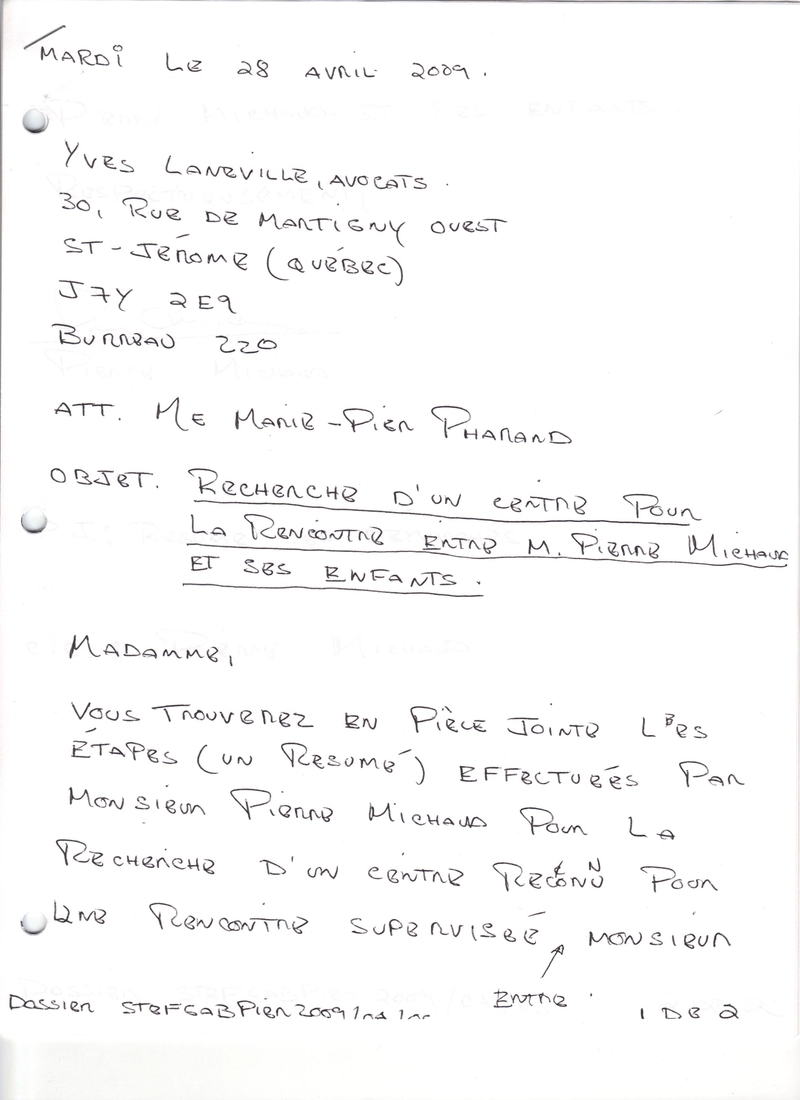 MARDI LE 28 AVRIL 2009.
YVES LANEVILLE, AVOCATS.
30, RUE DE MARTIGNY OUEST
ST-JÉROME (QUÉBEC)
J7Y 2E9
BURREAU 220
ATT. ME MARIE-PIER PHARAND
OBJET. RECHERCHE D'UN CENTRE POUR
LA RENCONTRE ENTRE M. PIERRE MICHAUD
ET SES ENFANTS.
MADAMME,
VOUS TROUVEREZ EN PIÈCE JOINTE LES
ÉTAPES (UN RESUMÉ) EFFECTUÉES PAR
MONSIEUR PIERRE MICHAUD POUR LA
RECHERCHE D'UN CENTRE RECONNU POUR
UNE RENCONTRE SUPERVISEÉ MONSIEUR
ENTRE
DOSSIER STEFGABPIER2009/ 1 DE 2